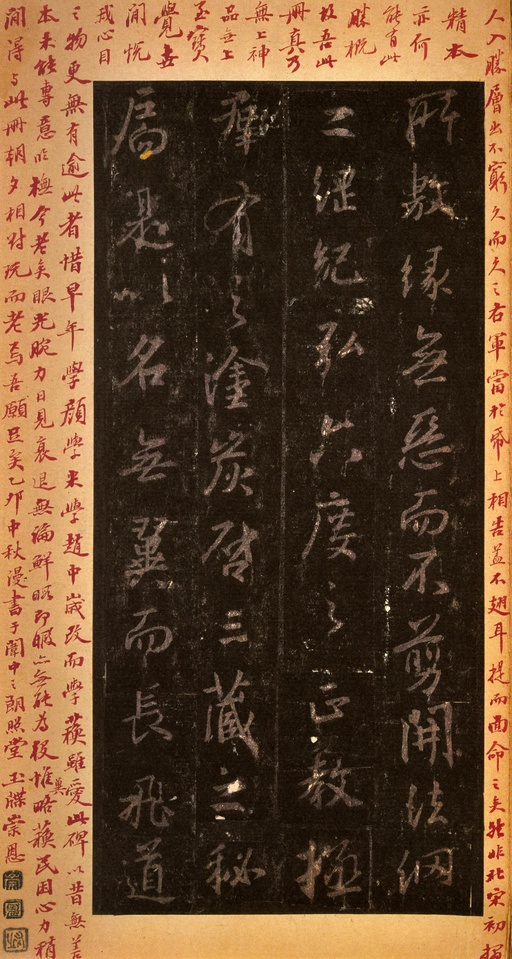 人入勝層出不窮久而久之右軍當於帋上相告蓋不翅耳提而面命之矣然非北宋初搨
精本
亦何
能有此
勝概
故吾此
冊真乃
無上神
品無上
至寶
覺世
間悅
我心目
所敷緣無惡而不剪開法網
之綱紀弘六度之正教拯
群有之塗炭啓三藏之秘
扃是以名無翼而長飛道
之物更無有逾此者惜早年學顏學米學趙中歲改而學蘇雖愛此碑以昔無善
本未能專意臨橅今老矣眼光腕力日見衰退無論鮮暇即暇亦無能為役惟冀略蘇民困心力稍
間得与此冊朝夕相對玩而老焉吾願足矣乙卯中秋漫書于中之朗照堂玉牒崇恩